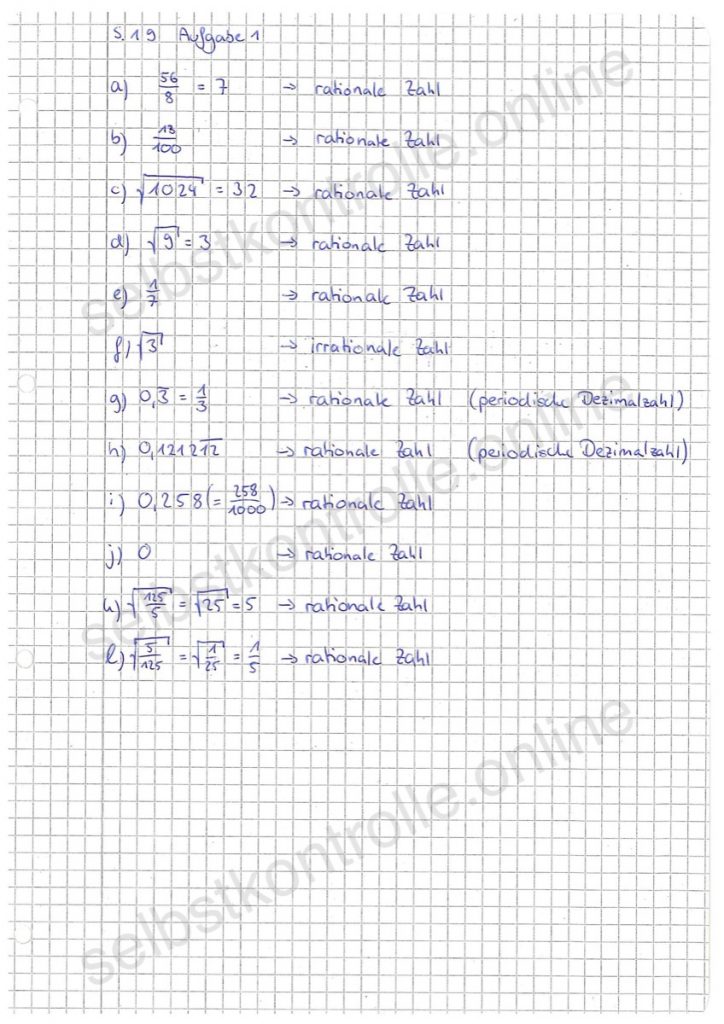 S. 19 Aufgabe 1
a) 56/8 = 7 → rationale Zahl
b) 13/100 → rationale Zahl
c) √1024 = 32 → rationale Zahl
d) √9 = 3 → rationale Zahl
e) 1/7 → rationale Zahl
f) √3 → irrationale Zahl
g) 0,3̅ = 1/3 → rationale Zahl (periodische Dezimalzahl)
h) 0,12121̅2̅ → rationale Zahl (periodische Dezimalzahl)
i) 0,258 (= 258/1000) → rationale Zahl
j) 0 → rationale Zahl
k) √(125/5) = √25 = 5 → rationale Zahl
l) √(5/125) = √(1/25) = 1/5 → rationale Zahl
selbstkontrolle.online
selbstkontrolle.online
selbstkontrolle.online